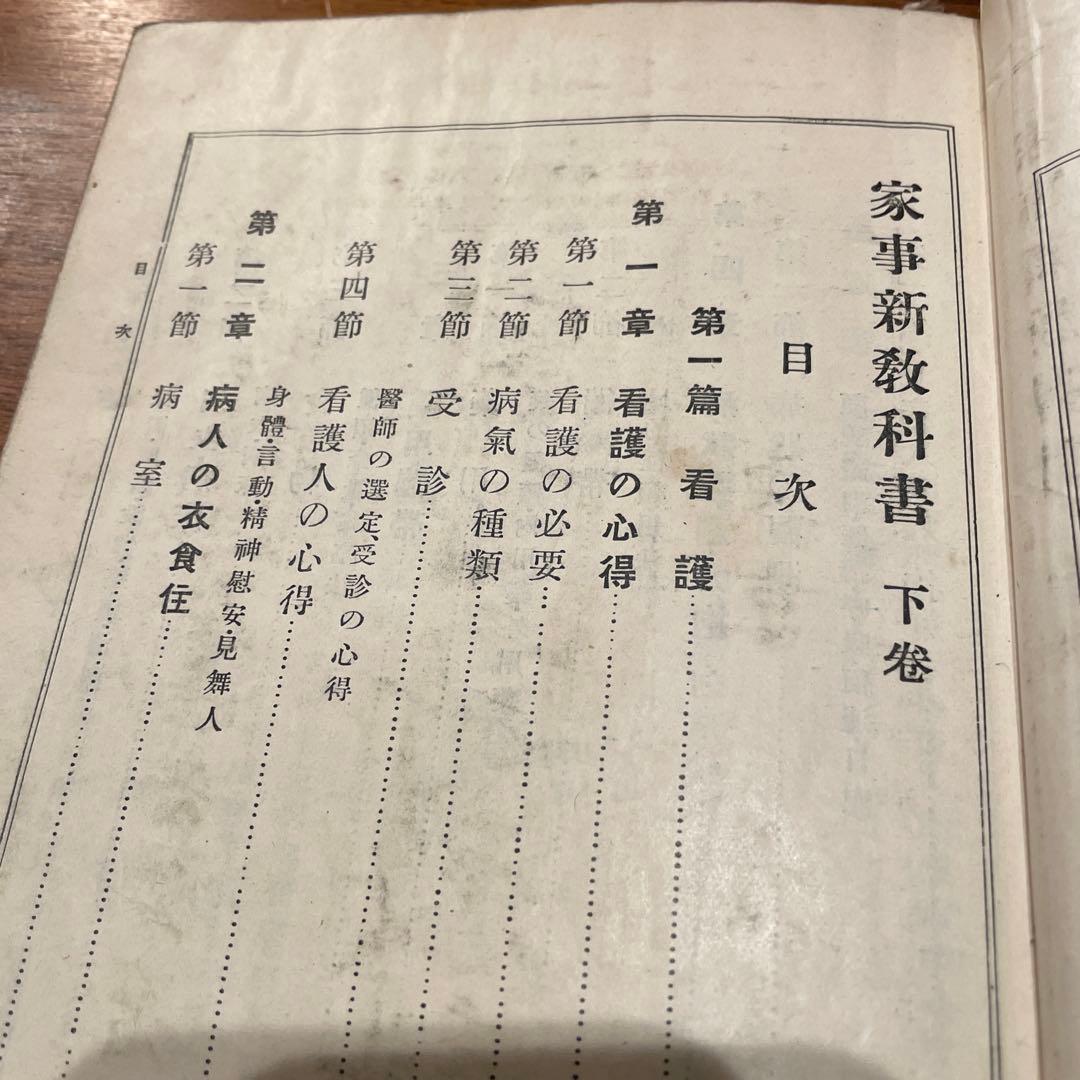 家事新敎科書 下卷
目次
第一篇 看護
第一章 看護の心得
第一節 看護の必要
第二節 病氣の種類
第三節 受診
醫師の選定、受診の心得
第四節 看護人の心得
身體・言動・精神慰安・見舞人
第二章 病人の衣食住
第一節 病室
目次